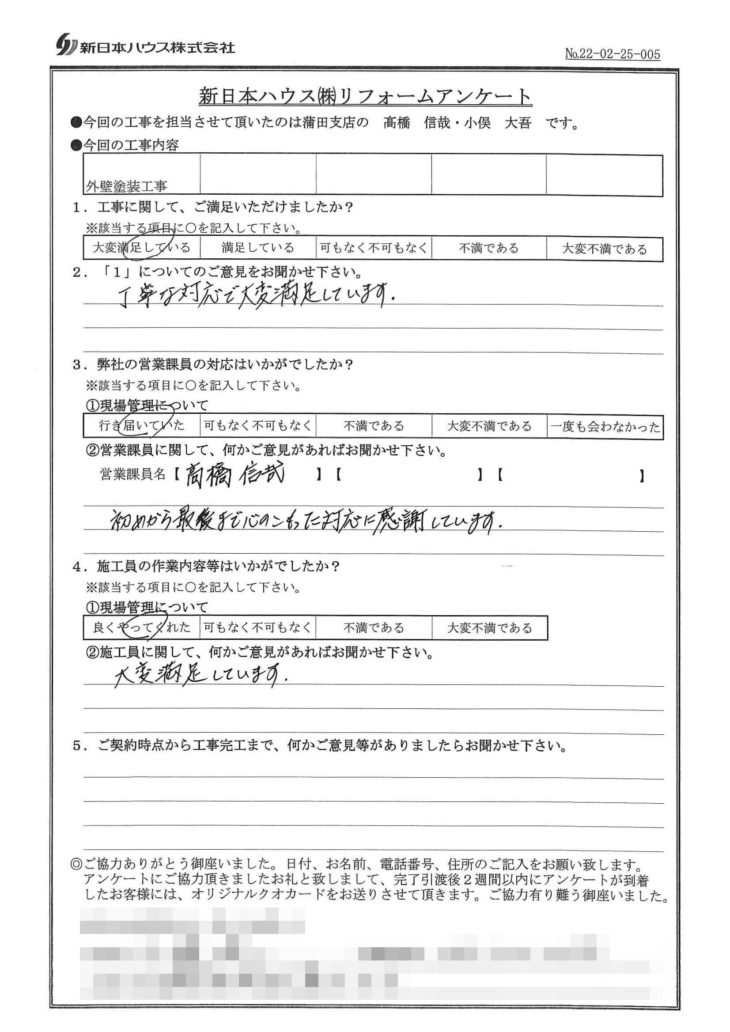 新日本ハウス株式会社
№22-02-25-005
新日本ハウス㈱リフォームアンケート
●今回の工事を担当させて頂いたのは蒲田支店の 髙橋 信哉・小俣 大吾 です。
●今回の工事内容
外壁塗装工事
1．工事に関して、ご満足いただけましたか？
※該当する項目に○を記入して下さい。
大変満足している 満足している 可もなく不可もなく 不満である 大変不満である
2．「1」についてのご意見をお聞かせ下さい。
丁寧な対応で大変満足しています.
3．弊社の営業課員の対応はいかがでしたか？
※該当する項目に○を記入して下さい。
①現場管理について
行き届いていた 可もなく不可もなく 不満である 大変不満である 一度も会わなかった
②営業課員に関して、何かご意見があればお聞かせ下さい。
営業課員名【髙橋信哉 】【 】【 】
初めから最後まで心のこもった対応に感謝しています.
4．施工員の作業内容等はいかがでしたか？
※該当する項目に○を記入して下さい。
①現場管理について
良くやってくれた 可もなく不可もなく 不満である 大変不満である
②施工員に関して、何かご意見があればお聞かせ下さい。
大変満足しています.
5．ご契約時点から工事完工まで、何かご意見等がありましたらお聞かせ下さい。
◎ご協力ありがとう御座いました。日付、お名前、電話番号、住所のご記入をお願い致します。
アンケートにご協力頂きましたお礼と致しまして、完了引渡後２週間以内にアンケートが到着
したお客様には、オリジナルクオカードをお送りさせて頂きます。ご協力有り難う御座いました。